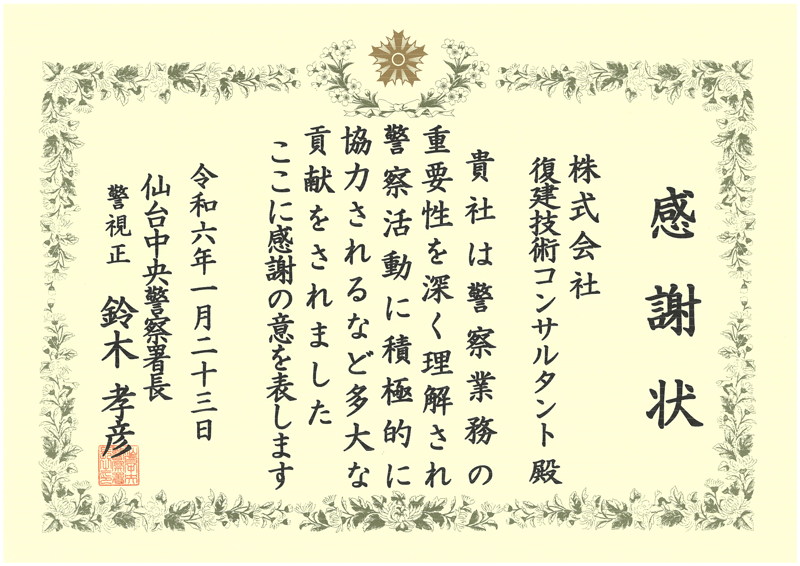 感謝状
株式会社
復建技術コンサルタント殿
貴社は警察業務の
重要性を深く理解され
警察活動に積極的に
協力されるなど多大な
貢献をされました
ここに感謝の意を表します
令和六年一月二十三日
仙台中央警察署長
警視正 鈴木孝彦